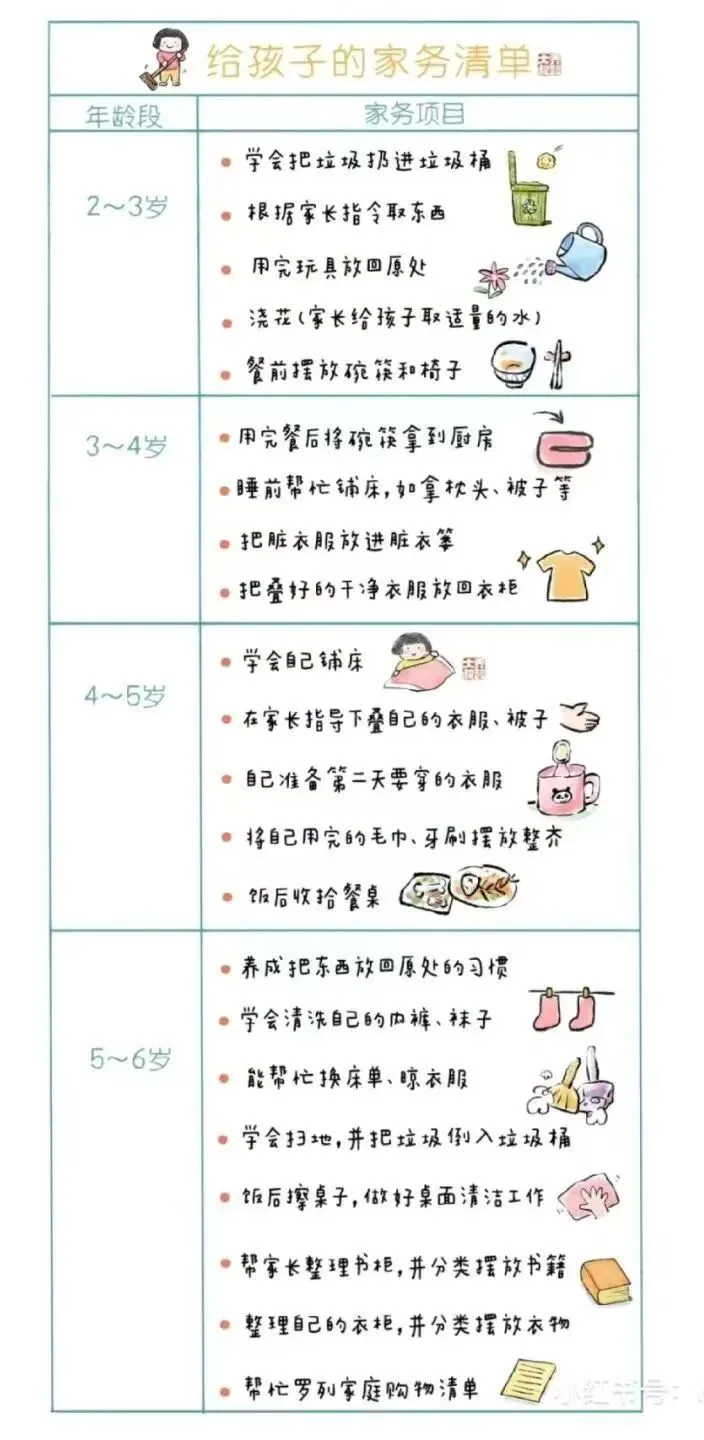 给孩子的家务清单
年龄段
家务项目
2~3岁
学会把垃圾扔进垃圾桶
根据家长指令取东西
用完玩具放回原处
浇花(家长给孩子取适量的水)
餐前摆放碗筷和椅子
3~4岁
用完餐后将碗筷拿到厨房
睡前帮忙铺床,如拿枕头、被子等
把脏衣服放进脏衣篓
把叠好的干净衣服放回衣柜
4~5岁
学会自己铺床
在家长指导下叠自己的衣服、被子
自己准备第二天要穿的衣服
将自己用完的毛巾、牙刷摆放整齐
饭后收拾餐桌
5~6岁
养成把东西放回原处的习惯
学会清洗自己的内裤、袜子
能帮忙换床单、晾衣服
学会扫地,并把垃圾倒入垃圾桶
饭后擦桌子,做好桌面清洁工作
帮家长整理书柜,并分类摆放书籍
整理自己的衣柜,并分类摆放衣物
帮忙罗列家庭购物清单
小红书号: